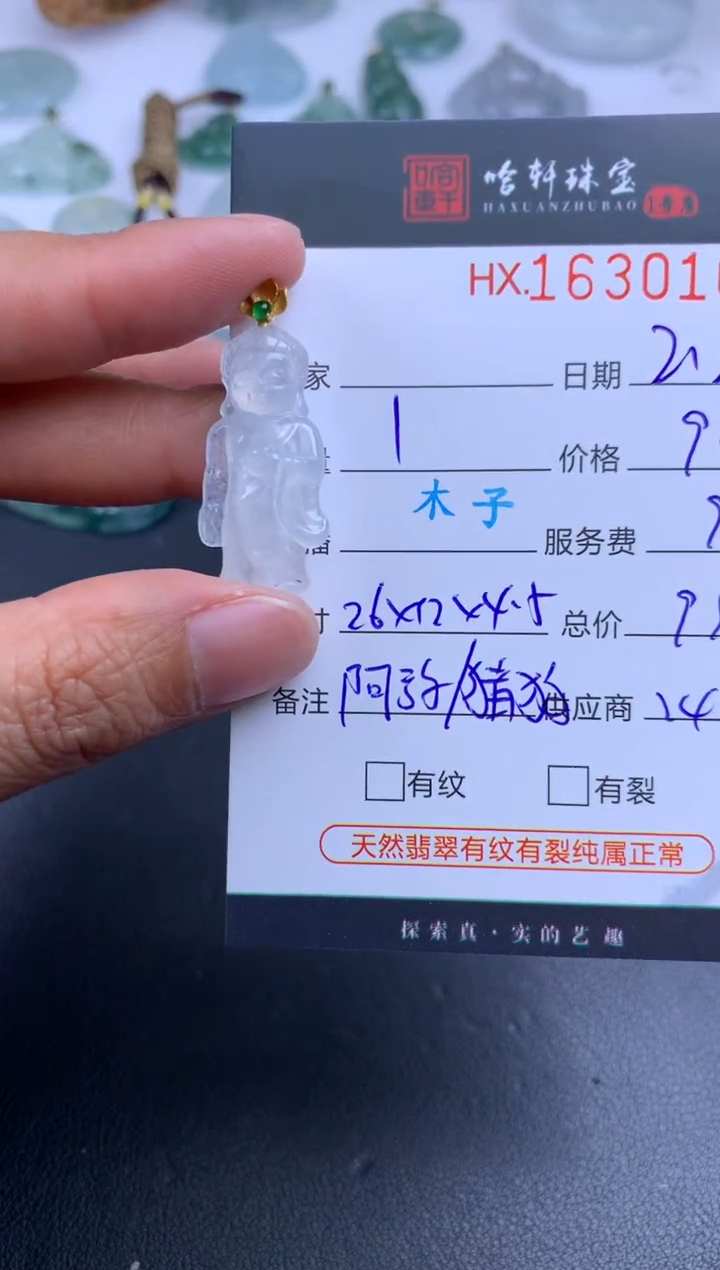 哈轩珠宝
HAXUANZHUBAO 1号店
HX.16301
家 日期
1 价格 9
木子
播 服务费 9
寸 26×12×4.5 总价 9
备注 阿弥/猪狗 供应商 14
有纹 有裂
天然翡翠有纹有裂纯属正常
探索真·实的艺趣